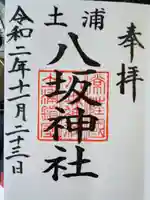 奉拝
土浦
八坂神社
令和二年十一月二十三日